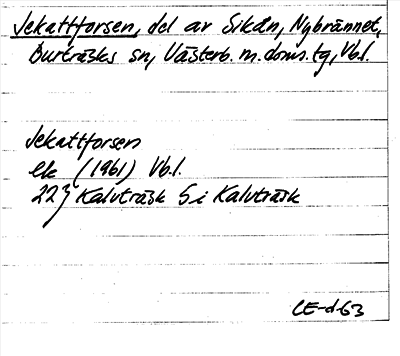 Jekattforsen, del av Sikån, Nybrännet,
Burträsks sn, Västerb. m. doms. tg, Vb.l.
Jekattforsen
ek (1961) Vb.l.
22J Kalvträsk 5i Kalvträsk
CE-d-63